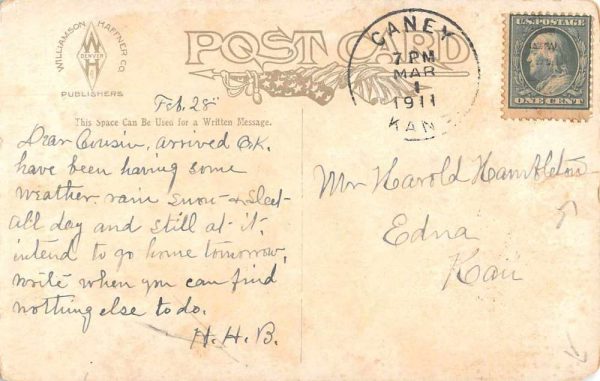 WILLIAMSON HAFFNER CO.
W
DENVER
H
PUBLISHERS
POST CARD
CANEY
7 PM
MAR
1
1911
KAN
U.S. POSTAGE
ONE CENT
Feb. 28
This Space Can Be Used for a Written Message.
Dear Cousin, arrived O.K.
have been having some
weather, rain snow & sleet
all day and still at it,
intend to go home tomorrow,
write when you can find
nothing else to do.
H.H.B.
Mr Harold Hambleton
Edna
Kan